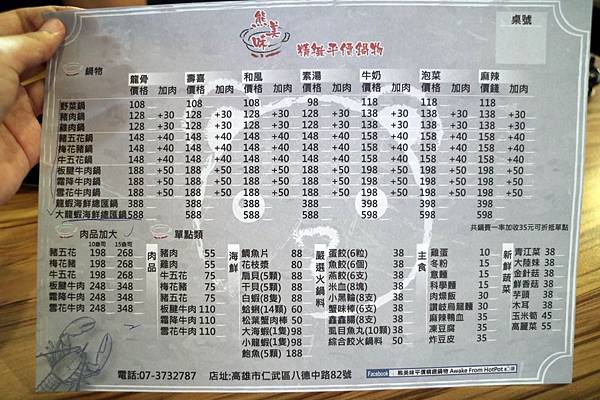 熊美味
精緻平價鍋物
桌號
鍋物
龍骨 壽喜 和風 素湯 牛奶 泡菜 麻辣
價格 加肉 價格 加肉 價格 加肉 價格 加肉 價格 加肉 價格 加肉 價錢 加肉
野菜鍋 108 108 108 98 118 118 118
豬肉鍋 128 +30 128 +30 128 +30 128 +30 138 +30 138 +30 138 +30
雞肉鍋 128 +30 128 +30 128 +30 128 +30 138 +30 138 +30 138 +30
豬五花鍋 148 +40 148 +40 148 +40 148 +40 158 +40 158 +40 158 +40
梅花豬鍋 148 +40 148 +40 148 +40 148 +40 158 +40 158 +40 158 +40
牛五花鍋 148 +40 148 +40 148 +40 148 +40 158 +40 158 +40 158 +40
板腱牛肉鍋 188 +50 188 +50 188 +50 188 +50 198 +50 198 +50 198 +50
霜降牛肉鍋 188 +50 188 +50 188 +50 188 +50 198 +50 198 +50 198 +50
雪花牛肉鍋 188 +50 188 +50 188 +50 188 +50 198 +50 198 +50 198 +50
龍蝦海鮮總匯鍋 388 388 388 388 398 398 398
大龍蝦海鮮總匯鍋 588 588 588 588 598 598 598
共鍋費一率加收35元可折抵單點
肉品加大
10盎司 15盎司
豬五花 198 268
梅花豬 198 268
牛五花 198 268
板腱牛肉 248 348
霜降牛肉 248 348
雪花牛肉 248 348
單點類
肉品
豬肉 55
雞肉 55
牛五花 75
梅花豬 75
豬五花 75
板腱牛肉 110
霜降牛肉 110
雪花牛肉 110
海鮮
鯛魚片 88
花枝漿 80
扇貝(5顆) 88
干貝(5顆) 88
白蝦(8隻) 88
蛤蜊(14顆) 60
松葉蟹肉棒 50
大海蝦(1隻) 98
小龍蝦(1隻) 98
鮑魚(5顆) 188
嚴選火鍋料
蛋餃(6粒) 38
魚餃(6個) 38
燕餃(6支) 38
米血(8塊) 38
小黑輪(8支) 38
蟹味棒(6支) 38
鑫鑫腸(8支) 38
虱目魚丸(10顆) 38
綜合餃火鍋料 50
主食
雞蛋 10
冬粉 15
意麵 15
科學麵 15
肉燥飯 30
讚岐烏龍麵 30
麻辣鴨血 35
凍豆腐 35
炸豆皮 35
新鮮蔬菜
青江菜 38
大陸妹 38
金針菇 38
鮮香菇 38
芋頭 38
木耳 38
玉米筍 45
高麗菜 55
電話:07-3732787 店址:高雄市仁武區八德中路82號
Facebook 熊美味平價精緻鍋物 Awake From HotPot